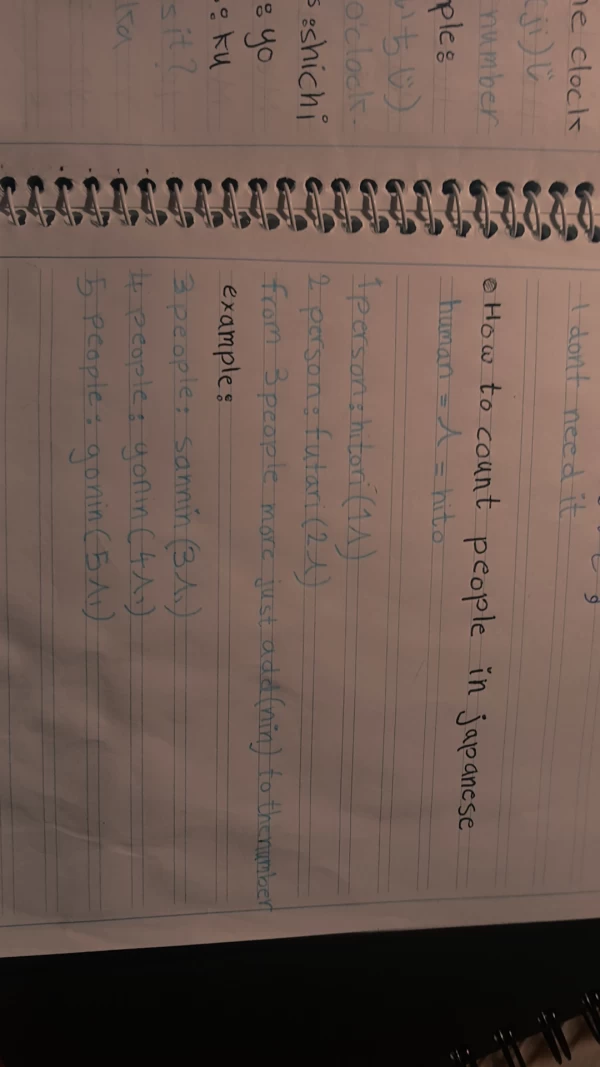 he clock
(ji) じ
number
ple:
いちじ)
o'clock.
s:shichi
:yo
:ku
s it?
ka
I dont need it
How to count people in japanese
human = 人 = hito
1 person: hitori (1人)
2 person: futari (2人)
from 3 people more just add (nin) to the number
example:
3 people: sannin (3人)
4 people: yonin (4人)
5 people: gonin (5人)